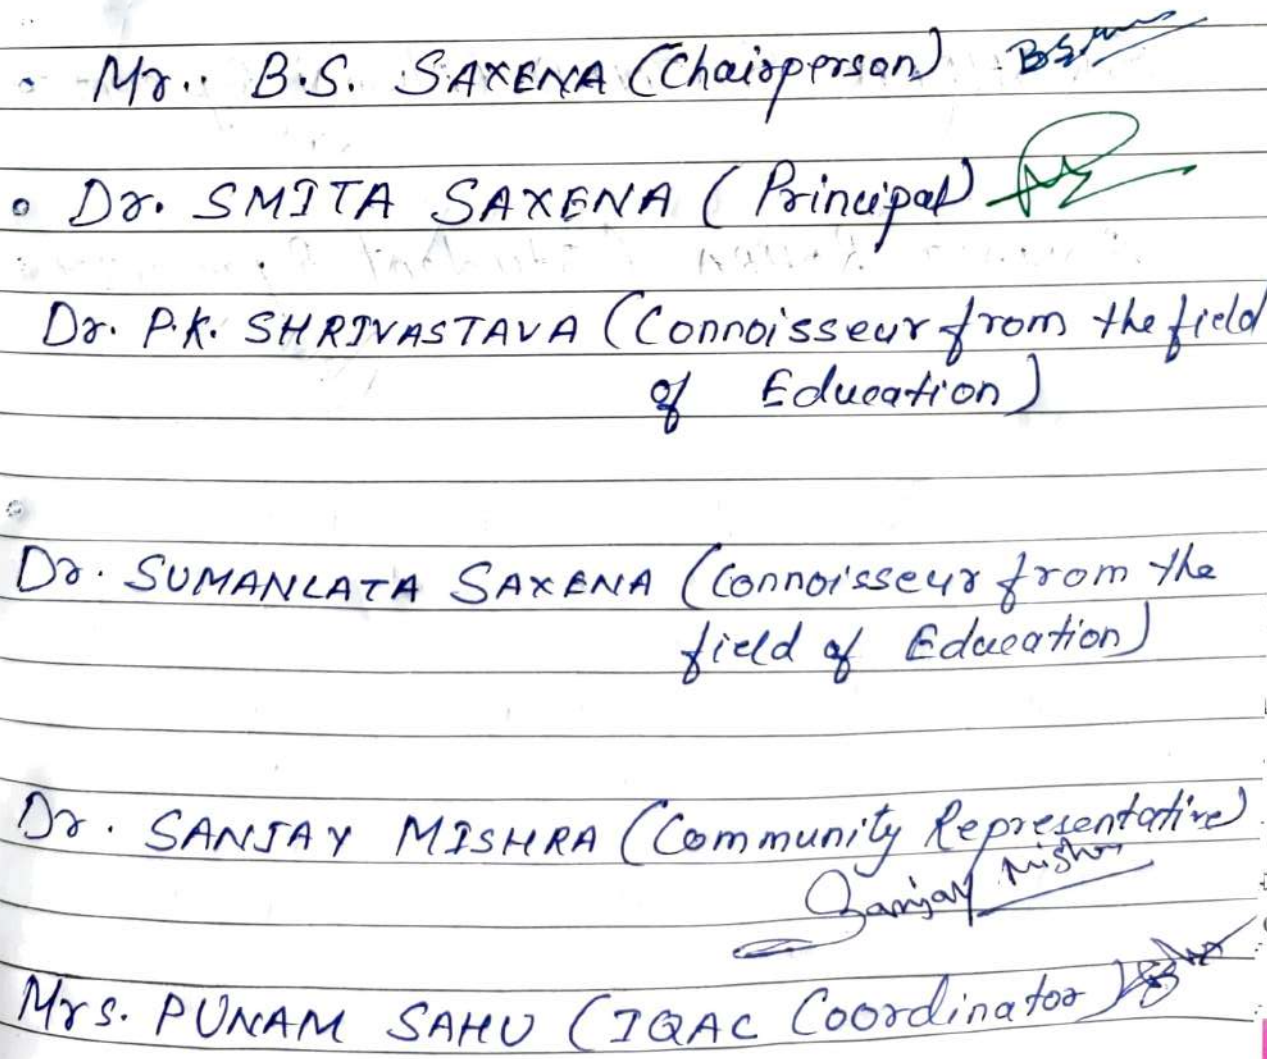 Mr. B.S. SAXENA (Chairperson)
Dr. SMITA SAXENA (Principal)
Dr. P.K. SHRIVASTAVA (Connoisseur from the field
of Education)
Dr. SUMANLATA SAXENA (Connoisseur from the
field of Education)
Dr. SANJAY MISHRA (Community Representative)
Sanjay Mishra
Mrs. PUNAM SAHU (IQAC Coordinator)